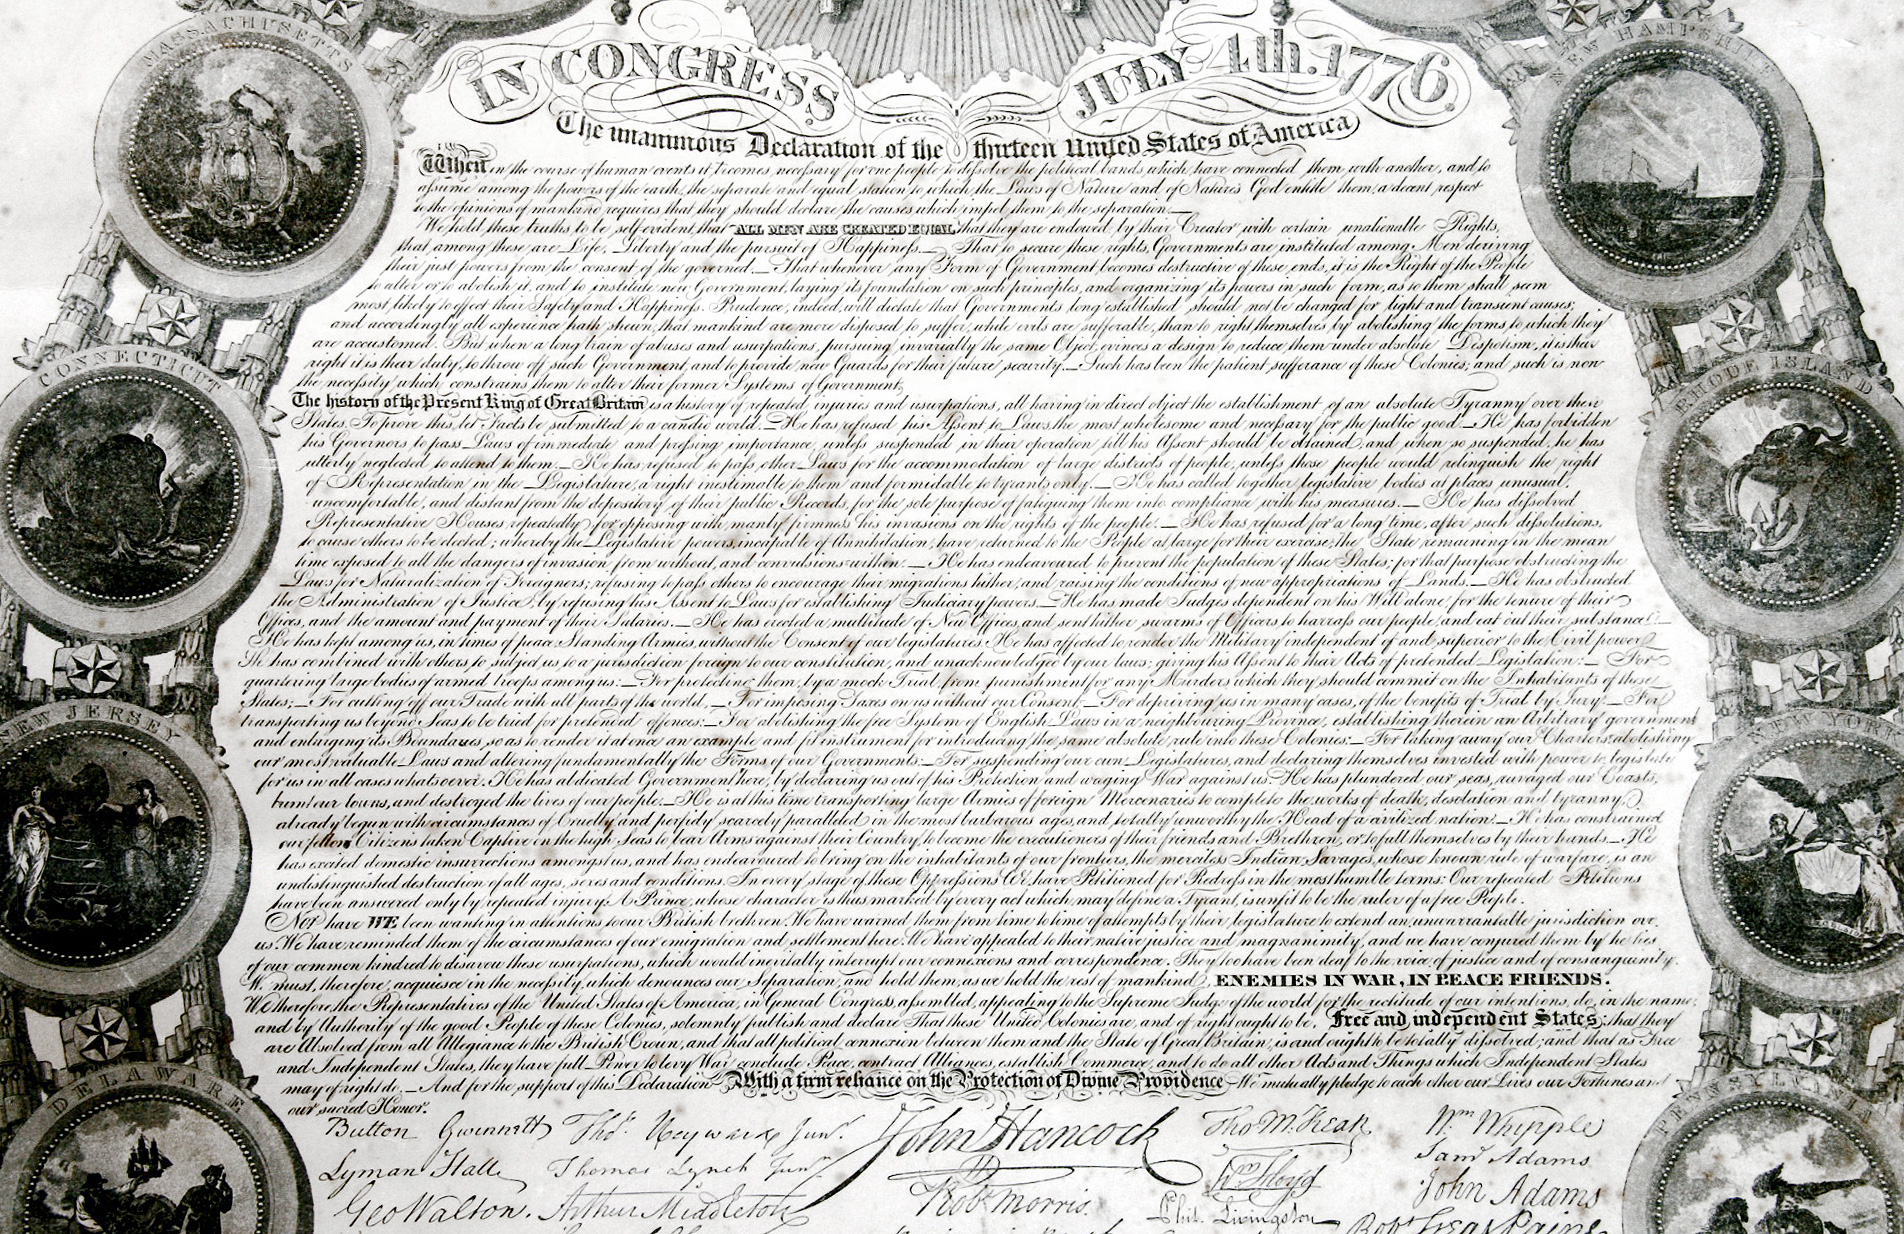 MASSACHUSETTS
NEW HAMPSHIRE
IN CONGRESS JULY 4th. 1776.
The unanimous Declaration of the thirteen United States of America
When in the course of human events it becomes necessary for one people to dissolve the political bands which have connected them with another, and to
assume among the powers of the earth, the separate and equal station to which the Laws of Nature and of Nature's God entitle them, a decent respect
to the opinions of mankind requires that they should declare the causes which impel them to the separation.—
We hold these truths to be self evident, that ALL MEN ARE CREATED EQUAL that they are endowed, by their Creator with certain unalienable Rights,
that among these are Life, Liberty and the pursuit of Happiness.— That to secure these rights, Governments are instituted among Men deriving
their just powers from the consent of the governed.— That whenever any Form of Government becomes destructive of these ends, it is the Right of the People
to alter or to abolish it, and to institute new Government, laying its foundation on such principles, and organizing its powers in such form, as to them shall seem
most likely to effect their Safety and Happiness. Prudence, indeed, will dictate that Governments long established should not be changed for light and transient causes;
and accordingly all experience hath shewn, that mankind are more disposed to suffer, while evils are sufferable, than to right themselves by abolishing the forms to which they
are accustomed. But when a long train of abuses and usurpations, pursuing invariably the same Object, evinces a design to reduce them under absolute Despotism, it is their
right it is their duty, to throw off such Government, and to provide new Guards for their future security.— Such has been the patient sufferance of these Colonies; and such is now
the necessity which constrains them to alter their former Systems of Government.
CONNECTICUT
RHODE ISLAND
The history of the Present King of Great Britain is a history of repeated injuries and usurpations, all having in direct object the establishment of an absolute Tyranny over these
States. To prove this, let Facts be submitted to a candid world.— He has refused his Assent to Laws, the most wholesome and necessary for the public good.— He has forbidden
his Governors to pass Laws of immediate and pressing importance, unless suspended in their operation till his Assent should be obtained, and when so suspended, he has
utterly neglected to attend to them.— He has refused to pass other Laws for the accommodation of large districts of people, unless those people would relinquish the right
of Representation in the Legislature, a right inestimable to them and formidable to tyrants only.— He has called together legislative bodies at places unusual,
uncomfortable, and distant from the depository of their public Records, for the sole purpose of fatiguing them into compliance with his measures.— He has dissolved
Representative Houses repeatedly, for opposing with manly firmness his invasions on the rights of the people.— He has refused for a long time, after such dissolutions,
to cause others to be elected; whereby the Legislative powers, incapable of Annihilation, have returned to the People at large for their exercise; the State remaining in the mean
time exposed to all the dangers of invasion from without, and convulsions within.— He has endeavoured to prevent the population of these States; for that purpose obstructing the
Laws for Naturalization of Foreigners; refusing to pass others to encourage their migrations hither, and raising the conditions of new appropriations of Lands.— He has obstructed
the Administration of Justice, by refusing his Assent to Laws for establishing Judiciary powers.— He has made Judges dependent on his Will alone, for the tenure of their
Offices, and the amount and payment of their Salaries.— He has erected a multitude of New Offices, and sent hither swarms of Officers to harrass our people, and eat out their substance.—
He has kept among us, in times of peace, Standing Armies, without the Consent of our legislatures. He has affected to render the Military independent of and superior to the Civil power.
He has combined with others to subject us to a jurisdiction foreign to our constitution, and unacknowledged by our laws; giving his Assent to their Acts of pretended Legislation:— For
quartering large bodies of armed troops among us:— For protecting them, by a mock Trial, from punishment for any Murders which they should commit on the Inhabitants of these
States;— For cutting off our Trade with all parts of the world,— For imposing Taxes on us without our Consent:— For depriving us in many cases, of the benefits of Trial by Jury:— For
transporting us beyond Seas to be tried for pretended offences:— For abolishing the free System of English Laws in a neighbouring Province, establishing therein an Arbitrary government
and enlarging its Boundaries, so as to render it at once an example and fit instrument for introducing the same absolute rule into these Colonies:— For taking away our Charters, abolishing
our most valuable Laws and altering fundamentally the Forms of our Governments:— For suspending our own Legislatures, and declaring themselves invested with power to legislate
for us in all cases whatsoever. He has abdicated Government here, by declaring us out of his Protection and waging War against us. He has plundered our seas, ravaged our Coasts,
burnt our towns, and destroyed the lives of our people.— He is at this time transporting large Armies of foreign Mercenaries to complete the works of death, desolation and tyranny,
already begun with circumstances of Cruelty and perfidy scarcely paralleled in the most barbarous ages, and totally unworthy the Head of a civilized nation.— He has constrained
our fellow Citizens taken Captive on the high Seas to bear Arms against their Country, to become the executioners of their friends and Brethren, or to fall themselves by their hands.— He
has excited domestic insurrections amongst us, and has endeavoured to bring on the inhabitants of our frontiers, the merciless Indian Savages, whose known rule of warfare, is an
undistinguished destruction of all ages, sexes and conditions. In every stage of these Oppressions We have Petitioned for Redress in the most humble terms: Our repeated Petitions
have been answered only by repeated injury. A Prince, whose character is thus marked by every act which may define a Tyrant, is unfit to be the ruler of a free People.
NEW JERSEY
NEW YORK
Nor have WE been wanting in attentions to our British brethren. We have warned them from time to time of attempts by their legislature to extend an unwarrantable jurisdiction over
us. We have reminded them of the circumstances of our emigration and settlement here. We have appealed to their native justice and magnanimity, and we have conjured them by the ties
of our common kindred to disavow these usurpations, which would inevitably interrupt our connexions and correspondence. They too have been deaf to the voice of justice and of consanguinity.
We must, therefore, acquiesce in the necessity, which denounces our Separation, and hold them, as we hold the rest of mankind, ENEMIES IN WAR, IN PEACE FRIENDS.
We therefore, the Representatives of the United States of America, in General Congress, assembled, appealing to the Supreme Judge of the world for the rectitude of our intentions, do, in the name,
and by Authority of the good People of these Colonies, solemnly publish and declare That these United Colonies are, and of right ought to be, Free and independent States; that they
are Absolved from all Allegiance to the British Crown, and that all political connexion between them and the State of Great Britain, is and ought to be totally dissolved; and that as Free
and Independent States, they have full Power to levy War, conclude Peace, contract Alliances, establish Commerce, and to do all other Acts and Things which Independent States
may of right do.— And for the support of this Declaration With a firm reliance on the Protection of Divine Providence We mutually pledge to each other our Lives our Fortunes and
our sacred Honor.
DELAWARE
PENNSYLVANIA
Button Gwinnett Thos. Heyward Junr. John Hancock Tho M.Kean Wm Whipple
Lyman Hall Thomas Lynch Junr. Wm Floyd Saml Adams
Geo Walton. Arthur Middleton Robt Morris. Phil. Livingston John Adams
Robt Treat Paine